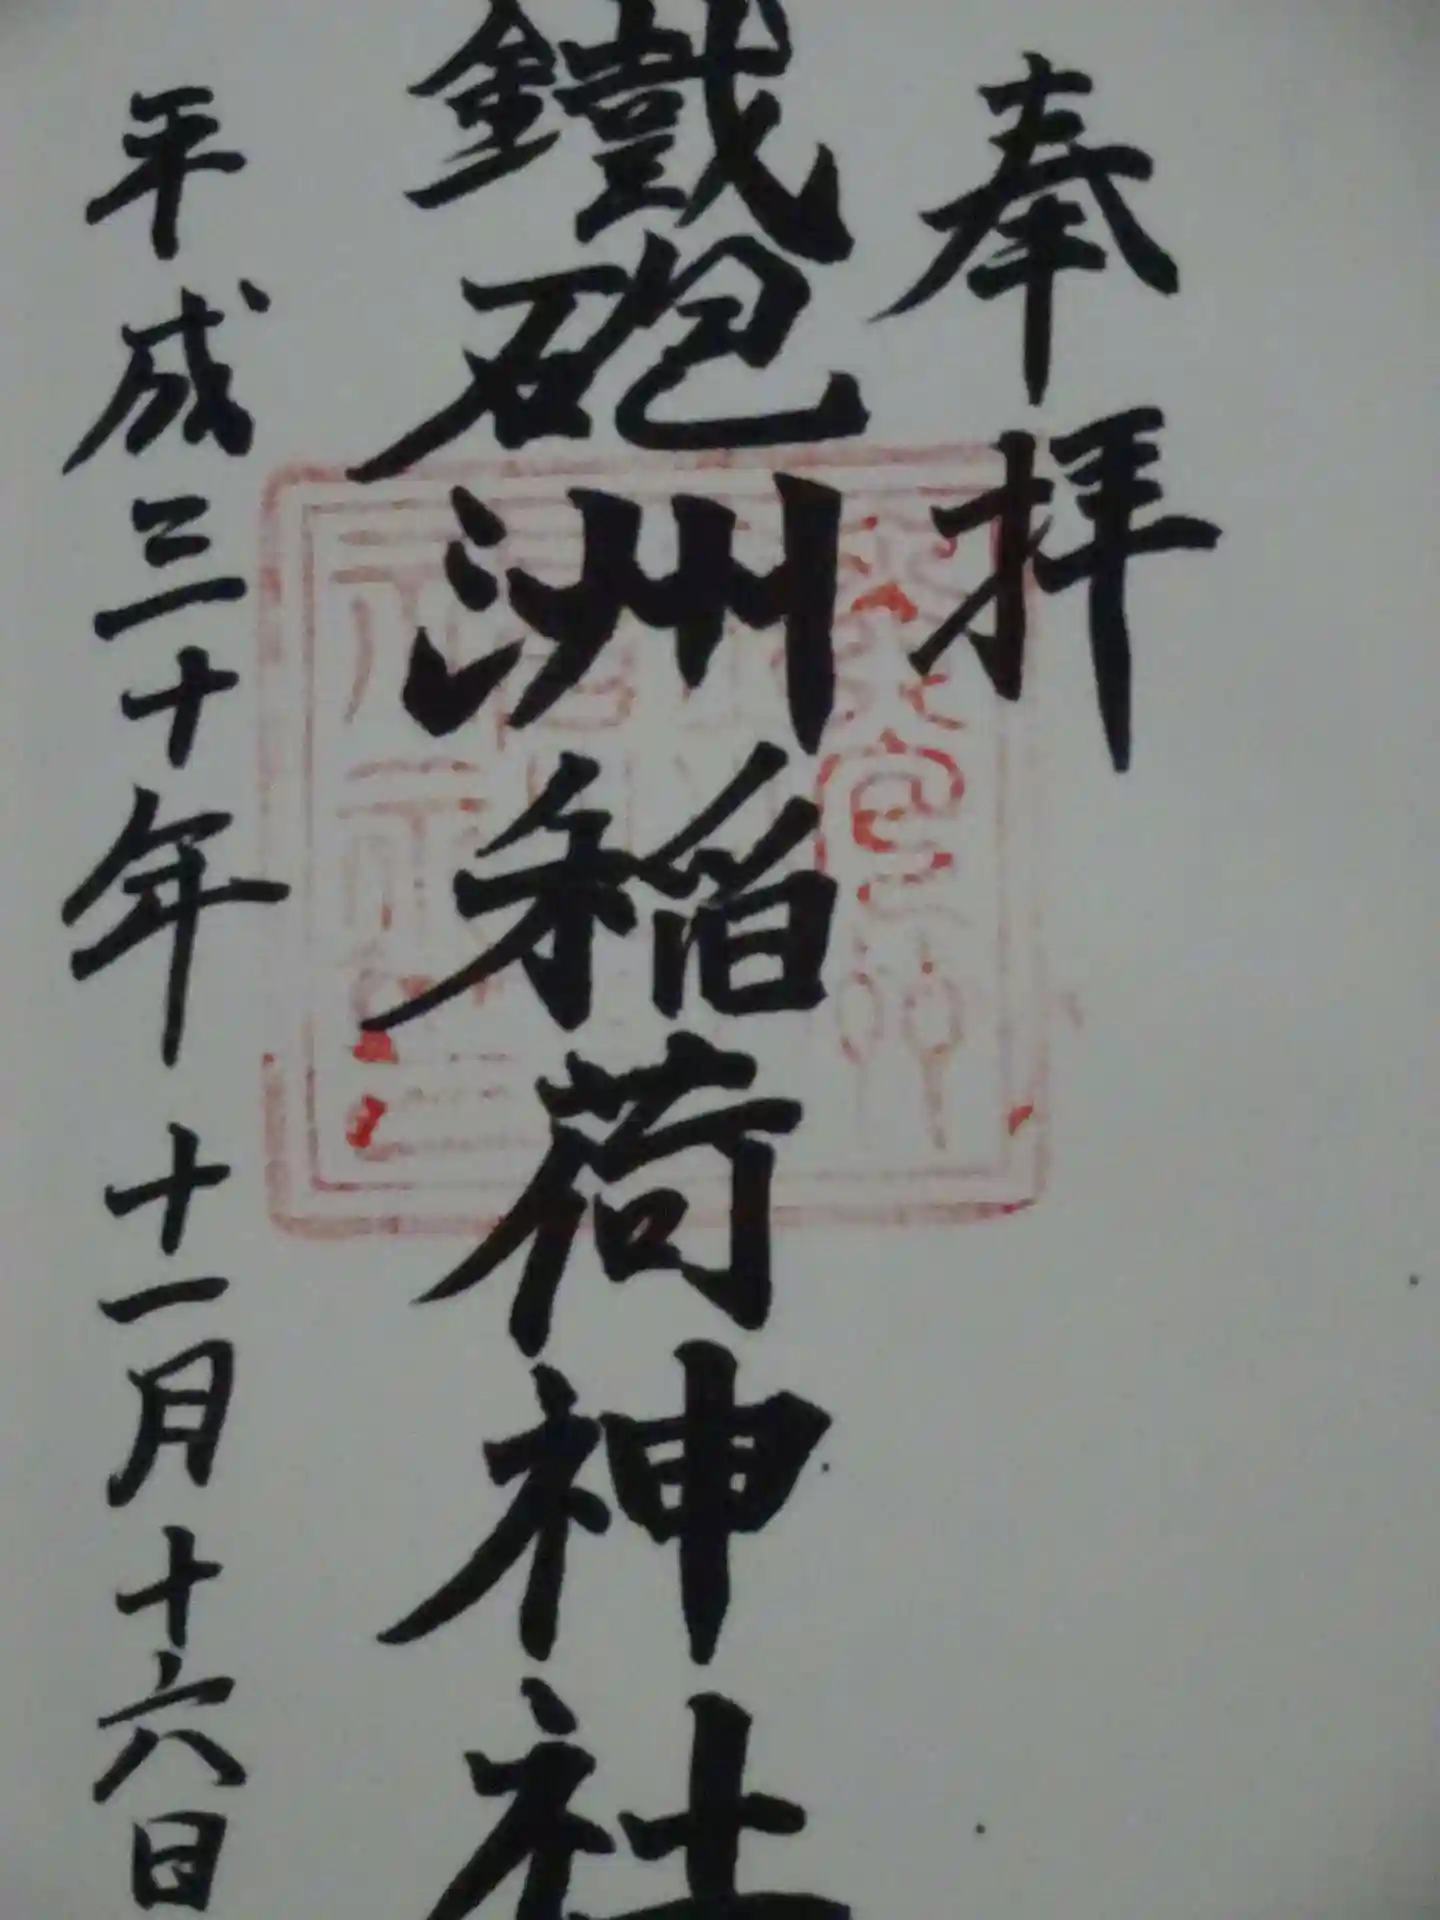 奉拝
鐵砲洲稲荷神社
平成三十年 十一月十六日